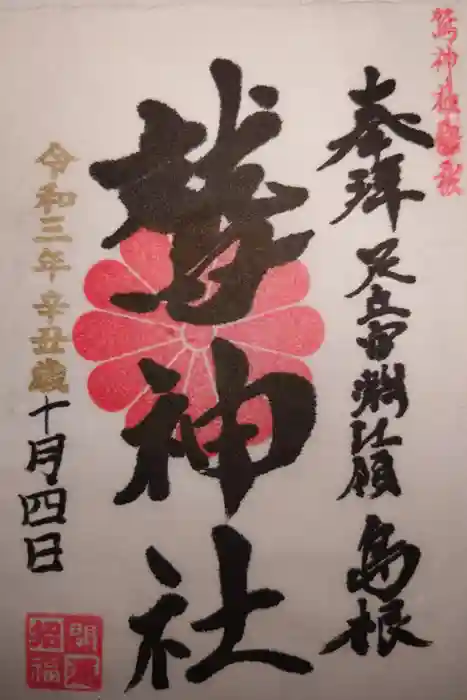 鷲神社御朱印
奉拝 足立郡淵江領 島根
鷲神社
令和三年辛丑歳十月四日
開運招福